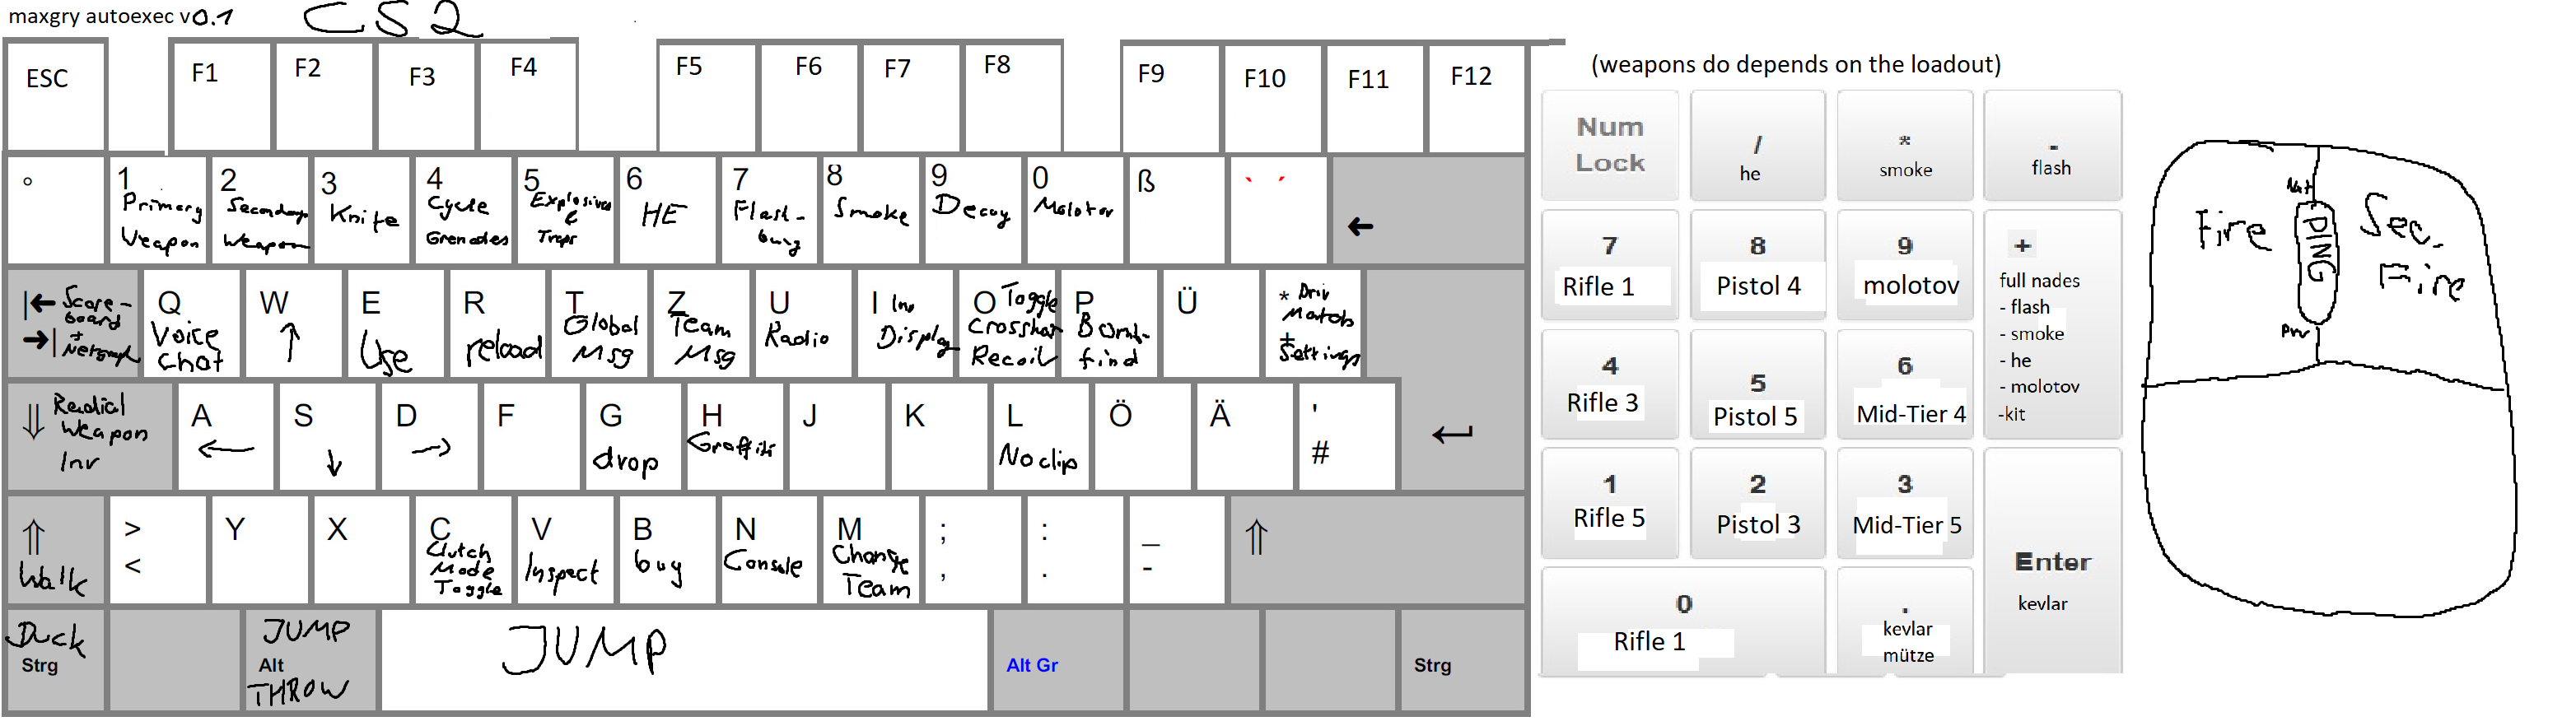 maxgry autoexec v0.1 CS2
(weapons do depends on the loadout)
ESC F1 F2 F3 F4 F5 F6 F7 F8 F9 F10 F11 F12
°
1 Primary Weapon
2 Secondary Weapon
3 Knife
4 Cycle Grenades
5 Explosives & Traps
6 HE
7 Flash-bang
8 Smoke
9 Decoy
0 Molotov
ß
` ´
←
|← →| Score-board + Netgraph
Q Voice Chat
W ↑
E Use
R reload
T Global Msg
Z Team Msg
U Radio
I Inv Display
O Toggle Crosshair Recoil
P Bomb-find
Ü
* + Settings
⇓ Radial Weapon Inv
A ←
S ↓
D →
F
G drop
H Graffiti
J
K
L Noclip
Ö
Ä
' #
↵
⇑ Walk
> <
Y
X
C Clutch Mode Toggle
V Inspect
B buy
N Console
M Change Team
; ,
: .
_ -
⇑
Duck Strg
JUMP Alt THROW
JUMP
Alt Gr
Strg
Num Lock
/ he
* smoke
- flash
7 Rifle 1
8 Pistol 4
9 molotov
+
full nades
- flash
- smoke
- he
- molotov
-kit
4 Rifle 3
5 Pistol 5
6 Mid-Tier 4
1 Rifle 5
2 Pistol 3
3 Mid-Tier 5
Enter kevlar
0 Rifle 1
. kevlar mütze
Fire
PING
Sec. Fire